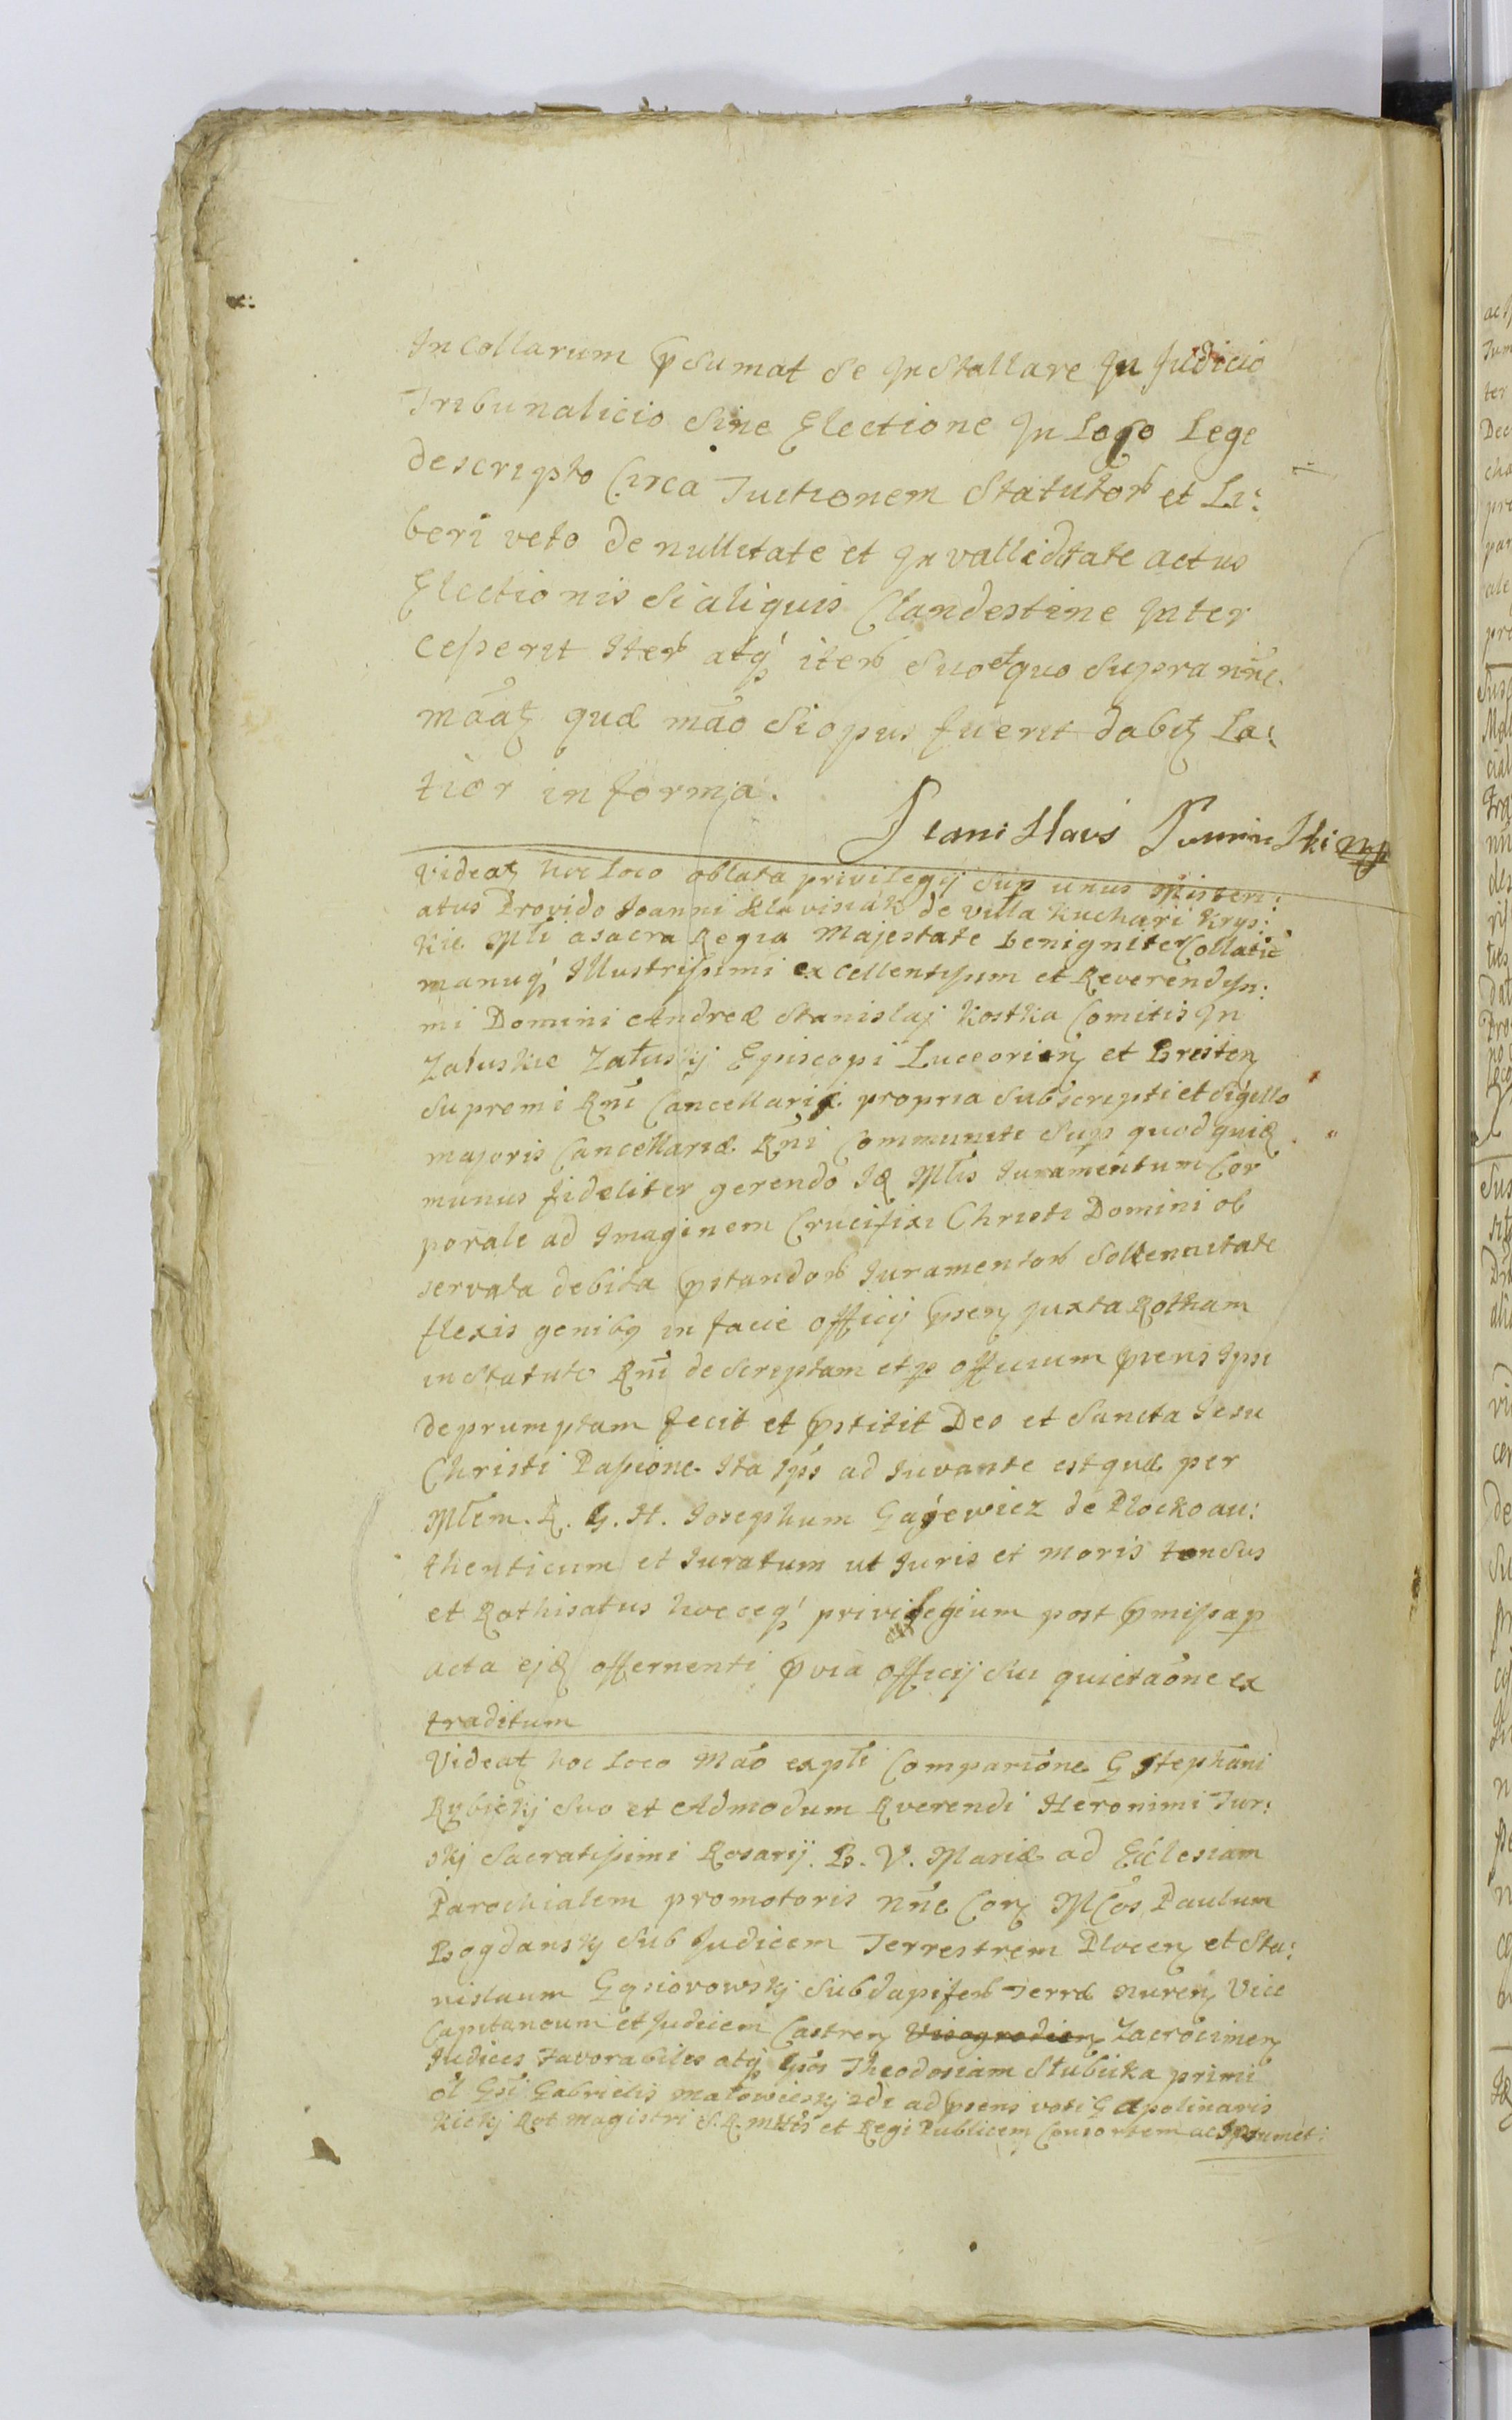 Incollarum p̱sumat se Installare In Judicio
Tribunalicio Sine Electione In Loco Lege
descripto Circa Tuitionem Statutor et Li:
beri veto de nullitate et Invalliditate actus
Electionis Si aliquis Clandestine Inter
cesserit Iter atq iter Suo et quo Supra nn̄e
māaꝫ quæ māo Si opus fuerit dabiꝫ La:
tior in forma.
Stanislaus mp
Videaꝫ hoc Loco oblata privilegij Sup unus Misteri:
atus Provido Joanni de villa Kuchari Krys:
kie Młi a sacra Regia Majestate benigniter Collati et
manuq Illustrissimi excellentissim et Reverendissi:
mi Domini Andreæ Stanislaj Kostka Comitis In
Załuskie Załuskij Episcopi Luceorien et Bresten
Supremi Rn̄i Cancellarij propria Subscripti et Sigillo
majoris Cancellariæ Rn̄i Communiti Sup quod quidē
munus fideliter gerendo Id Młis Juramentum Cor
porale ad Imaginem Crucifixi Christi Domini ob
servata debita p̱standor Juramentor Sollennitate
flexis genibꝫ in facie officij p̱sen juxta Rotham
in Statuto Rn̄i descriptam et p officium p̱sens Ipsi
deprumptam fecit et p̱stitit Deo et Sancta Jesu
Christi Passione Ita Ips̄ adjuvante estquæ per
Młem. R. G. H. Josephum Gajewicz de Plocko au:
thenticum et Juratum ut Juris et moris
et Rothisatus hocceq privilegium post p̱missa p
acta ejd offerrenti p̱via officij Sui quietaōne ex
traditum
Videaꝫ hoc Loco Māo expli Comparitiōne G Stephani
Rybickij Suo et Admodum Rverendi Heronimi Tur:
skj Sacratissimi Rosarij B. V. Mariæ ad Ecclesiam
Parochialem promotoris nn̄e Cor M̄Cos Paulum
Bogdanskj Sub Judicem Terrestrem Plocen et Sta:
nislaum Gąsiorowskj Subdapifer Terræ Nuren Vice
Capitaneum et Judicem Castren Visogrodien Zacrocimen
Judices Favorabiles atq Theodosiam Słubicka primi
ol Gabrielis Małowieskj 2di ad p̱sens voti G Apolinaris
kickj Rot magistri S. R. mttis et Regi Publicem Consortem ac Ipsumet: